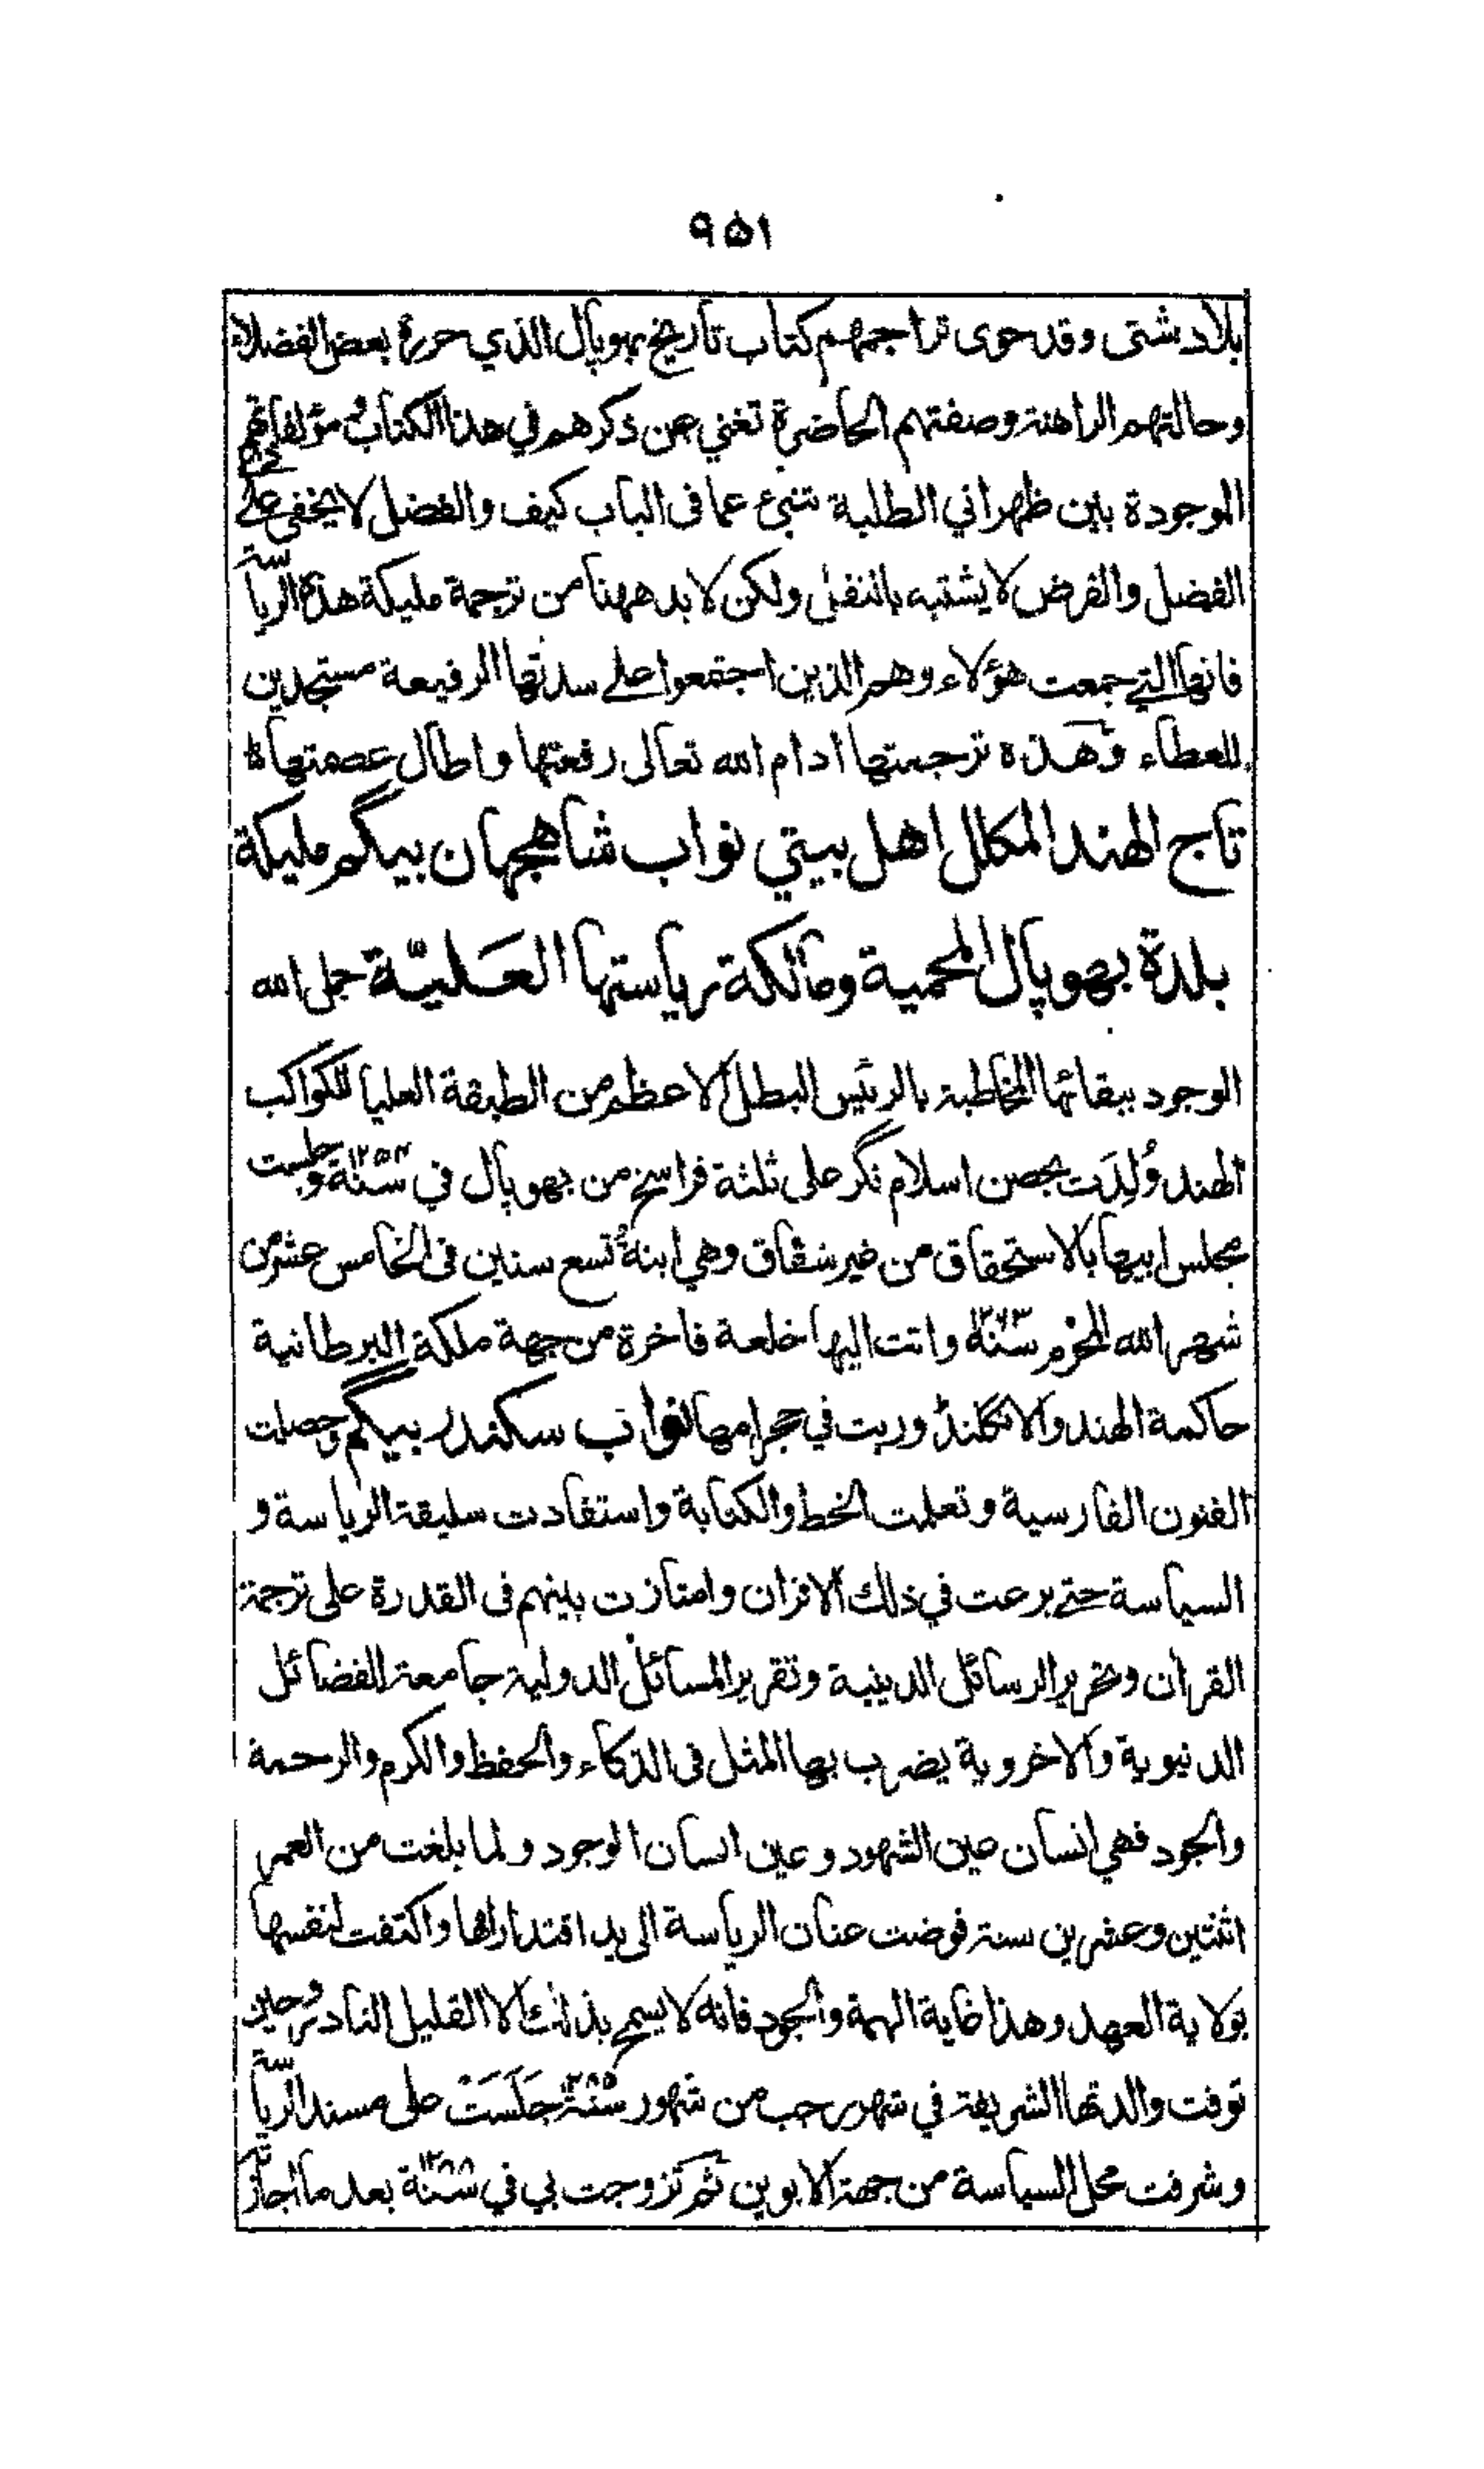 ٩٥١
بلاد شتى وقد حوى تراجمهم كتاب تاريخ بهوپال الذي حرره بعض الفضلاء
وحالتهم الراهنة وصفتهم الحاضرة تغني عن ذكرهم في هذا الكتاب ومؤلفاتهم
الموجودة بين ظهراني الطلبة تنبئ عما في الباب كيف والفضل لا يخفى على ذوي
الفضل والفرض لا يشتبه بالنفل ولكن لا بد ههنا من ترجمة مليكة هذه الرياسة
فانها التي جمعت هؤلاء وهم الذين اجتمعوا على سدتها الرفيعة مستجدين
للعطاء وهذه ترجمتها ادام الله تعالى رفعتها واطال عصمتها
تاج الهند المكلل اهل بيتي نواب شاهجهان بيگم مليكة
بلدة بهوپال المحمية ومالكة رياستها العَليّة جمل الله
الوجود ببقائها المخاطبة بالرئيس البطل الاعظم من الطبقة العليا للكواكب
الهند وُلِدَت بحصن اسلام نگر على ثلثة فراسخ من بهوپال في سنة ١٢٥٤ وجلست
مجلس ابيها بالاستحقاق من غير شقاق وهي ابنة تسع سنين في الخامس عشر من
شهر الله المحرم سنة ١٢٦٣ واتت اليها خلعة فاخرة من جهة ملكة البرطانية
حاكمة الهند والانگلنڈ وربت في حجر امها نواب سكندر بيگم وحصلت
الفنون الفارسية وتعلمت الخط والكتابة واستفادت سليقة الرياسة و
السياسة حتى برعت في ذلك الاقران وامتازت بينهم في القدرة على ترجمة
القرآن وتحرير الرسائل الدينية وتقرير المسائل الدولية جامعة للفضائل
الدنيوية والاخروية يضرب بها المثل في الذكاء والحفظ والكرم والرحمة
والجود فهي انسان عين الشهود وعين انسان الوجود ولما بلغت من العمر
اثنتين وعشرين سنة فوضت عنان الرياسة الى يد اقتدار امها واكتفت لنفسها
بولاية العهد وهذا غاية الهمة والجود فانه لا يسمح بذلك الا القليل النادر وحين
توفت والدتها الشريفة في شهر رجب من شهور سنة ١٢٨٥ جَلَسَتْ على مسند الرياسة
وشرفت محل السياسة من جهة الابوين ثم تزوجت بي في سنة ١٢٨٨ بعد ما اجازتها